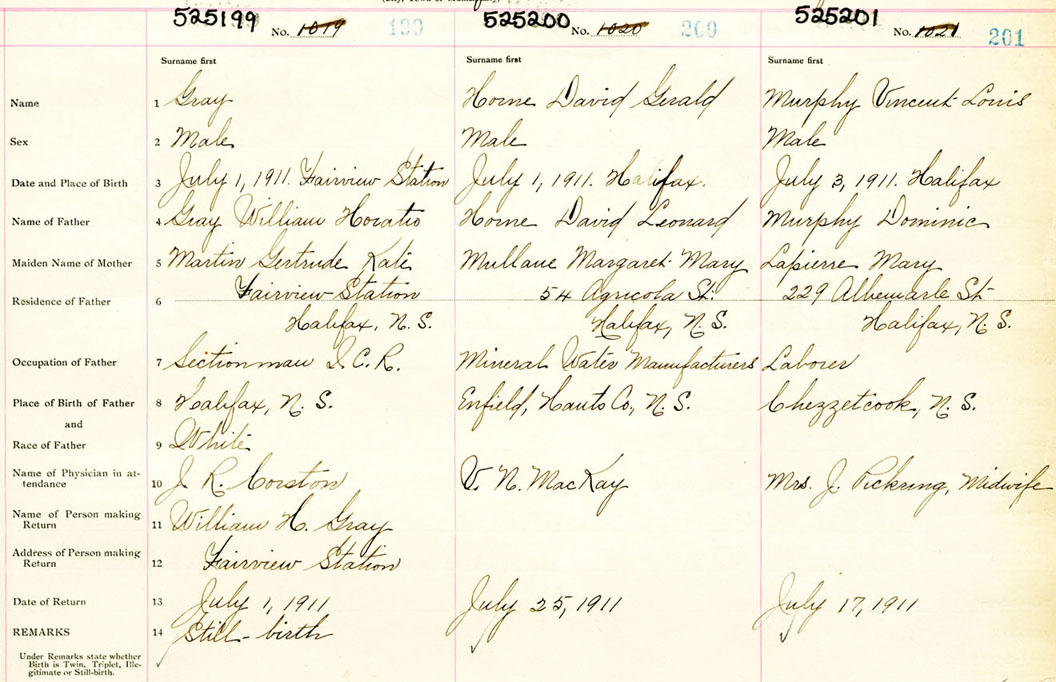 525199 No. 1019 199 525200 No. 1020 200 525201 No. 1021 201
Surname first Surname first Surname first
Name 1 Gray Horne David Gerald Murphy Vincent Louis
Sex 2 Male Male Male
Date and Place of Birth 3 July 1, 1911. Fairview Station July 1, 1911. Halifax. July 3, 1911. Halifax
Name of Father 4 Gray William Horatio Horne David Leonard Murphy Dominic
Maiden Name of Mother 5 Martin Gertrude Kate Mullane Margaret Mary Lapierre Mary
Residence of Father 6 Fairview Station 54 Agricola St. 229 Albemarle St
Halifax, N. S. Halifax, N. S. Halifax, N. S.
Occupation of Father 7 Sectionman I. C. R. Mineral Water Manufacturers Laborer
Place of Birth of Father 8 Halifax, N. S. Enfield, Hants Co., N. S. Chezzetcook, N. S.
and
Race of Father 9 White
Name of Physician in at-
tendance 10 J. R. Corston V. N. MacKay Mrs. J. Pickring, Midwife
Name of Person making
Return 11 William H. Gray
Address of Person making
Return 12 Fairview Station
Date of Return 13 July 1, 1911 July 25, 1911 July 17, 1911
REMARKS 14 Still-birth
Under Remarks state whether
Birth is Twin, Triplet, Ille-
gitimate or Still-birth.